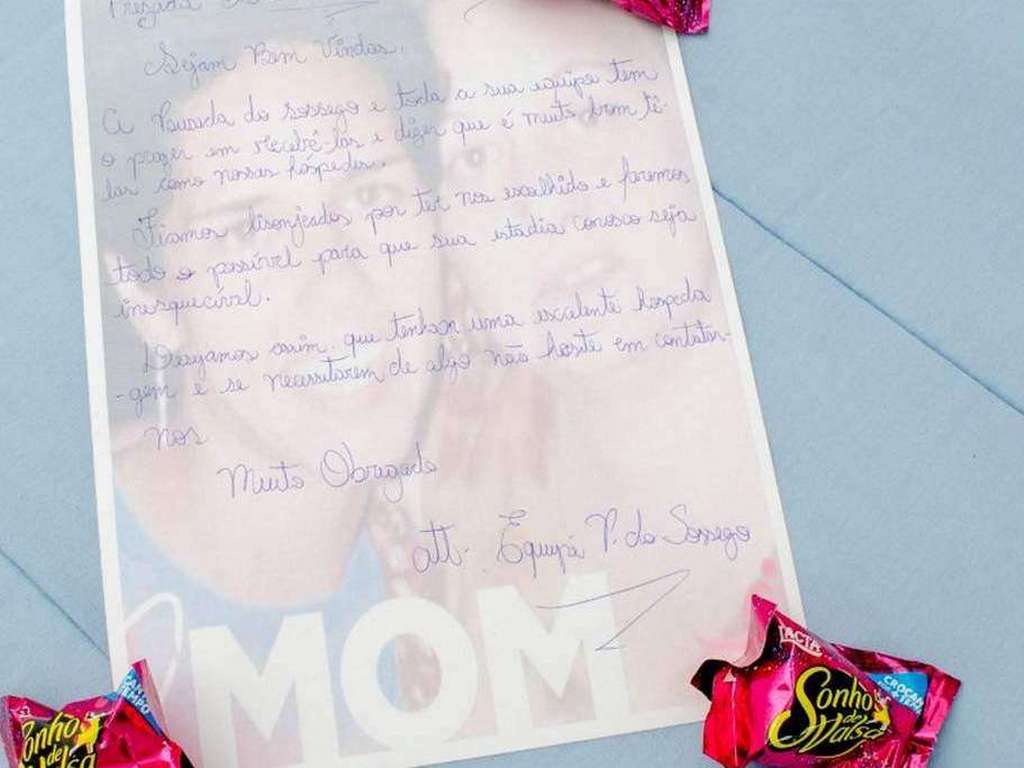 Prezada
Sejam Bem Vindas.
A Pousada do sossego e toda a sua equipe tem
o prazer em recebê-las e dizer que é muito bom tê-
las como nossas hóspedes.
Fiamos lisonjeados por ter nos escolhido e faremos
todo o possível para que sua estadia conosco seja
inesquecível.
Desejamos assim que tenham uma excelente hospeda
-gem e se necessitarem de algo não hesite em contatar-
nos
Muito Obrigado
att. Equipe P. do Sossego
MOM
LACTA
Sonho de Valsa
CROCAN
Sonho de Valsa